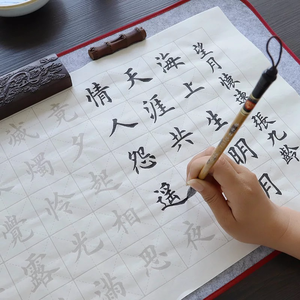 望月懷遠 張九齡
海上生明月
天涯共
情人怨遙夜
竟夕起相思
滅燭憐光滿
覺露